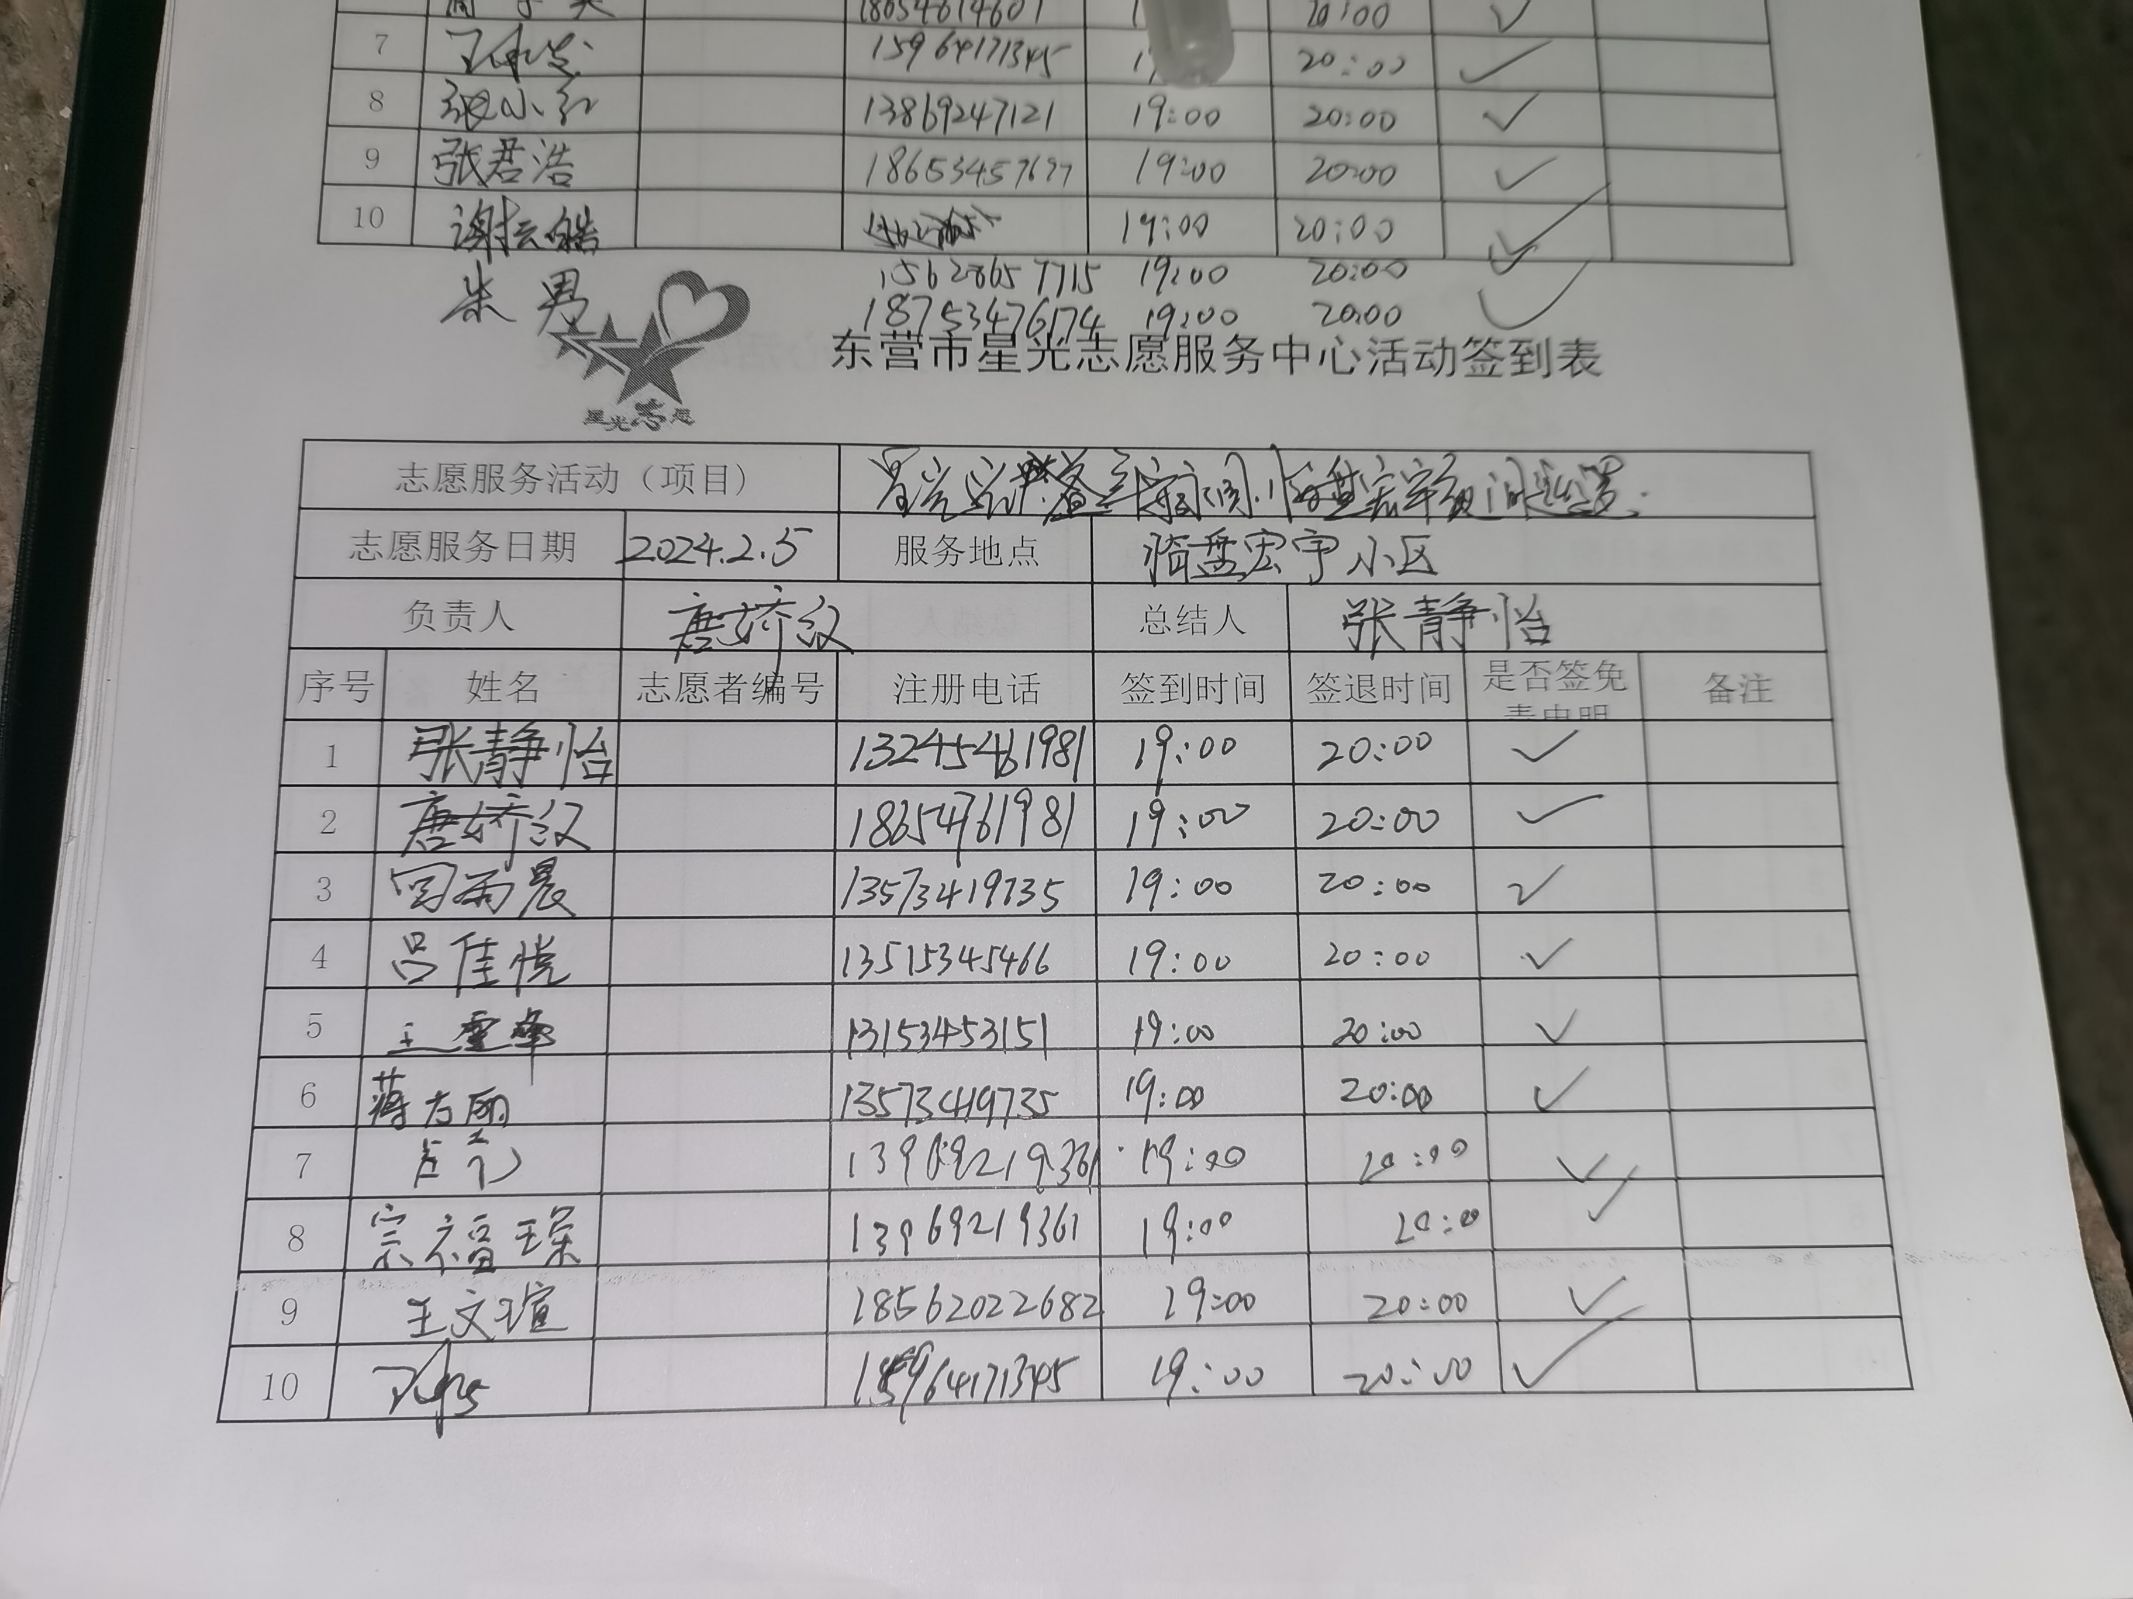 18654614601 20:00 ✓
7 15964171345 20:00 ✓
8 张小红 13869247121 19:00 20:00 ✓
9 张君浩 18653457677 19:00 20:00 ✓
10 谢云皓 19:00 20:00 ✓
15628657715 19:00 20:00
朱男 18753476174 19:00 20:00 ✓
东营市星光志愿服务中心活动签到表
星光志愿
志愿服务活动（项目）
志愿服务日期 2024.2.5 服务地点 宏宇小区
负责人 唐娇汉 总结人 张静怡
序号 姓名 志愿者编号 注册电话 签到时间 签退时间 是否签免 备注
责申明
1 张静怡 13245461981 19:00 20:00 ✓
2 唐娇汉 18654761981 19:00 20:00 ✓
3 雨晨 13573419735 19:00 20:00 ✓
4 吕佳悦 13515345466 19:00 20:00 ✓
5 王雪峰 13153453151 19:00 20:00 ✓
6 13573419735 19:00 20:00 ✓
7 13969219361 19:00 20:00 ✓
8 宗福琛 13969219361 19:00 20:00 ✓
9 王文瑄 18562022682 19:00 20:00 ✓
10 15964171345 19:00 20:00 ✓